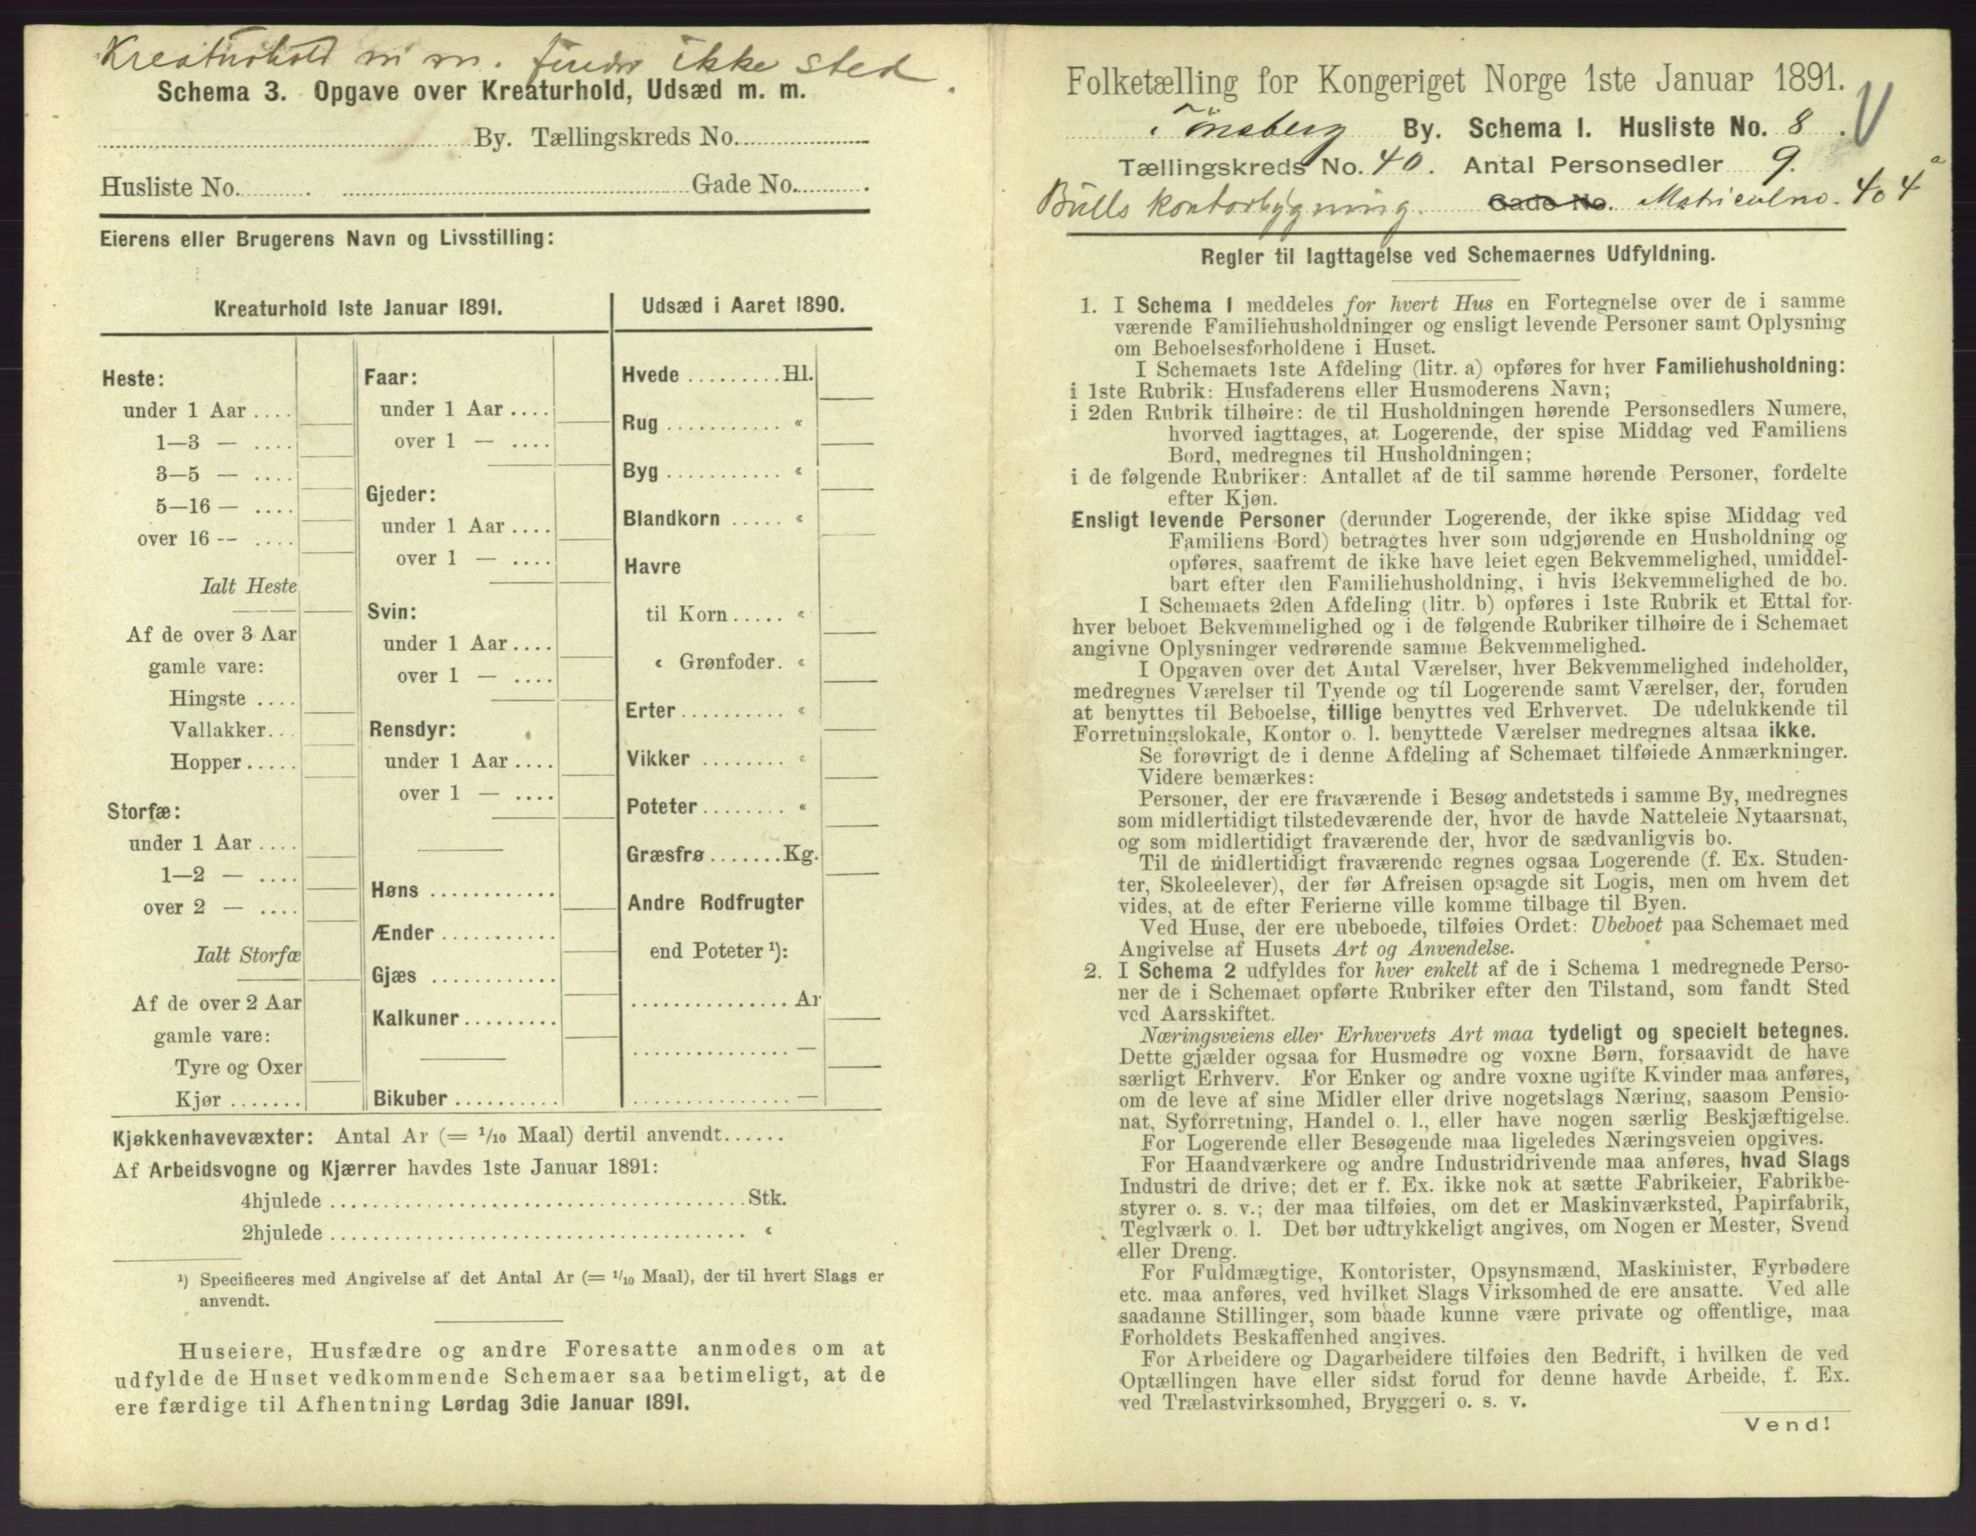 Kreaturhold m m. finder ikke sted
Schema 3. Opgave over Kreaturhold, Udsæd m. m.
By. Tællingskreds No.
Husliste No. . Gade No. .
Eierens eller Brugerens Navn og Livsstilling:
Kreaturhold 1ste Januar 1891.
Heste:
under 1 Aar ....
1—3 — ....
3—5 — ....
5—16 — ....
over 16 -- ....
Ialt Heste
Af de over 3 Aar
gamle vare:
Hingste ....
Vallakker...
Hopper .....
Storfæ:
under 1 Aar ....
1—2 — ....
over 2 — ....
Ialt Storfæ
Af de over 2 Aar
gamle vare:
Tyre og Oxer
Kjør .......
Faar:
under 1 Aar ....
over 1 — ....
Gjeder:
under 1 Aar ....
over 1 — ....
Svin:
under 1 Aar ....
over 1 — ....
Rensdyr:
under 1 Aar ....
over 1 — ....
Høns ............
Ænder ...........
Gjæs ............
Kalkuner.........
Bikuber ..........
Udsæd i Aaret 1890.
Hvede .........Hl.
Rug ........... «
Byg ........... «
Blandkorn ..... «
Havre
til Korn..... «
« Grønfoder. «
Erter.......... «
Vikker ........ «
Poteter........ «
Græsfrø.......Kg.
Andre Rodfrugter
end Poteter ¹):
............... Ar
............... —
............... —
Kjøkkenhavevæxter: Antal Ar (= 1/10 Maal) dertil anvendt......
Af Arbeidsvogne og Kjærrer havdes 1ste Januar 1891:
4hjulede ........................................Stk.
2hjulede ........................................ «
¹) Specificeres med Angivelse af det Antal Ar (= 1/10 Maal), der til hvert Slags er
anvendt.
Huseiere, Husfædre og andre Foresatte anmodes om at
udfylde de Huset vedkommende Schemaer saa betimeligt, at de
ere færdige til Afhentning Lørdag 3die Januar 1891.
Folketælling for Kongeriget Norge 1ste Januar 1891.
Tönsberg By. Schema 1. Husliste No. 8 .
Tællingskreds No. 40. Antal Personsedler 9.
Bulls kontorbygning. Gade No. Matriculno. 404 a
Regler til Iagttagelse ved Schemaernes Udfyldning.
1. I Schema 1 meddeles for hvert Hus en Fortegnelse over de i samme
værende Familiehusholdninger og ensligt levende Personer samt Oplysning
om Beboelsesforholdene i Huset.
I Schemaets 1ste Afdeling (litr. a) opføres for hver Familiehusholdning:
i 1ste Rubrik: Husfaderens eller Husmoderens Navn;
i 2den Rubrik tilhøire: de til Husholdningen hørende Personsedlers Numere,
hvorved iagttages, at Logerende, der spise Middag ved Familiens
Bord, medregnes til Husholdningen;
i de følgende Rubriker: Antallet af de til samme hørende Personer, fordelte
efter Kjøn.
Ensligt levende Personer (derunder Logerende, der ikke spise Middag ved
Familiens Bord) betragtes hver som udgjørende en Husholdning og
opføres, saafremt de ikke have leiet egen Bekvemmelighed, umiddel-
bart efter den Familiehusholdning, i hvis Bekvemmelighed de bo.
I Schemaets 2den Afdeling (litr. b) opføres i 1ste Rubrik et Ettal for
hver beboet Bekvemmelighed og i de følgende Rubriker tilhøire de i Schemaet
angivne Oplysninger vedrørende samme Bekvemmelighed.
I Opgaven over det Antal Værelser, hver Bekvemmelighed indeholder,
medregnes Værelser til Tyende og til Logerende samt Værelser, der, foruden
at benyttes til Beboelse, tillige benyttes ved Erhvervet. De udelukkende til
Forretningslokale, Kontor o. l. benyttede Værelser medregnes altsaa ikke.
Se forøvrigt de i denne Afdeling af Schemaet tilføiede Anmærkninger.
Videre bemærkes:
Personer, der ere fraværende i Besøg andetsteds i samme By, medregnes
som midlertidigt tilstedeværende der, hvor de havde Natteleie Nytaarsnat,
og som midlertidigt fraværende der, hvor de sædvanligvis bo.
Til de midlertidigt fraværende regnes ogsaa Logerende (f. Ex. Studen-
ter, Skoleelever), der før Afreisen opsagde sit Logis, men om hvem det
vides, at de efter Ferierne ville komme tilbage til Byen.
Ved Huse, der ere ubeboede, tilføies Ordet: Ubeboet paa Schemaet med
Angivelse af Husets Art og Anvendelse.
2. I Schema 2 udfyldes for hver enkelt af de i Schema 1 medregnede Perso-
ner de i Schemaet opførte Rubriker efter den Tilstand, som fandt Sted
ved Aarsskiftet.
Næringsveiens eller Erhvervets Art maa tydeligt og specielt betegnes.
Dette gjælder ogsaa for Husmødre og voxne Børn, forsaavidt de have
særligt Erhverv. For Enker og andre voxne ugifte Kvinder maa anføres,
om de leve af sine Midler eller drive nogetslags Næring, saasom Pensio-
nat, Syforretning, Handel o. l., eller have nogen særlig Beskjæftigelse.
For Logerende eller Besøgende maa ligeledes Næringsveien opgives.
For Haandværkere og andre Industridrivende maa anføres, hvad Slags
Industri de drive; det er f. Ex. ikke nok at sætte Fabrikeier, Fabrikbe-
styrer o. s. v.; der maa tilføies, om det er Maskinværksted, Papirfabrik,
Teglværk o. l. Det bør udtrykkeligt angives, om Nogen er Mester, Svend
eller Dreng.
For Fuldmægtige, Kontorister, Opsynsmænd, Maskinister, Fyrbødere
etc. maa anføres, ved hvilket Slags Virksomhed de ere ansatte. Ved alle
saadanne Stillinger, som baade kunne være private og offentlige, maa
Forholdets Beskaffenhed angives.
For Arbeidere og Dagarbeidere tilføies den Bedrift, i hvilken de ved
Optællingen have eller sidst forud for denne havde Arbeide, f. Ex.
ved Trælastvirksomhed, Bryggeri o. s. v.
Vend!